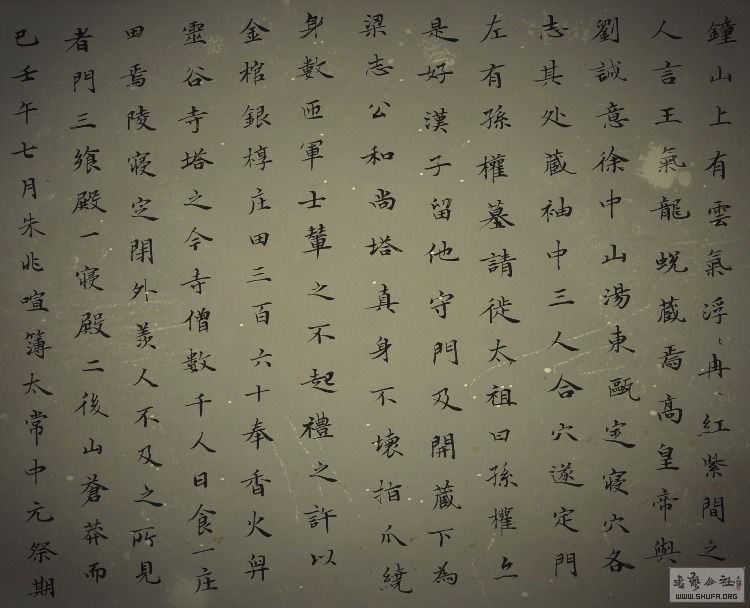 鐘山上有雲氣浮〻冉〻紅紫間之
人言王氣龍蛻藏焉高皇帝與
劉誠意徐中山湯東甌定寢穴各
志其处藏袖中三人合穴遂定門
左有孫權墓請徙太祖曰孫權亦
是好漢子留他守門及開藏下為
梁志公和尚塔真身不壞指爪繞
身數匝軍士輦之不起禮之許以
金棺銀槨庄田三百六十奉香火舁
靈谷寺塔之今寺僧數千人日食一庄
田焉陵寢定閉外羨人不及之所見
者門三飨殿一寢殿二後山蒼莽而
已壬午七月朱兆喧簿太常中元祭期
WWW.SHUFA.ORG